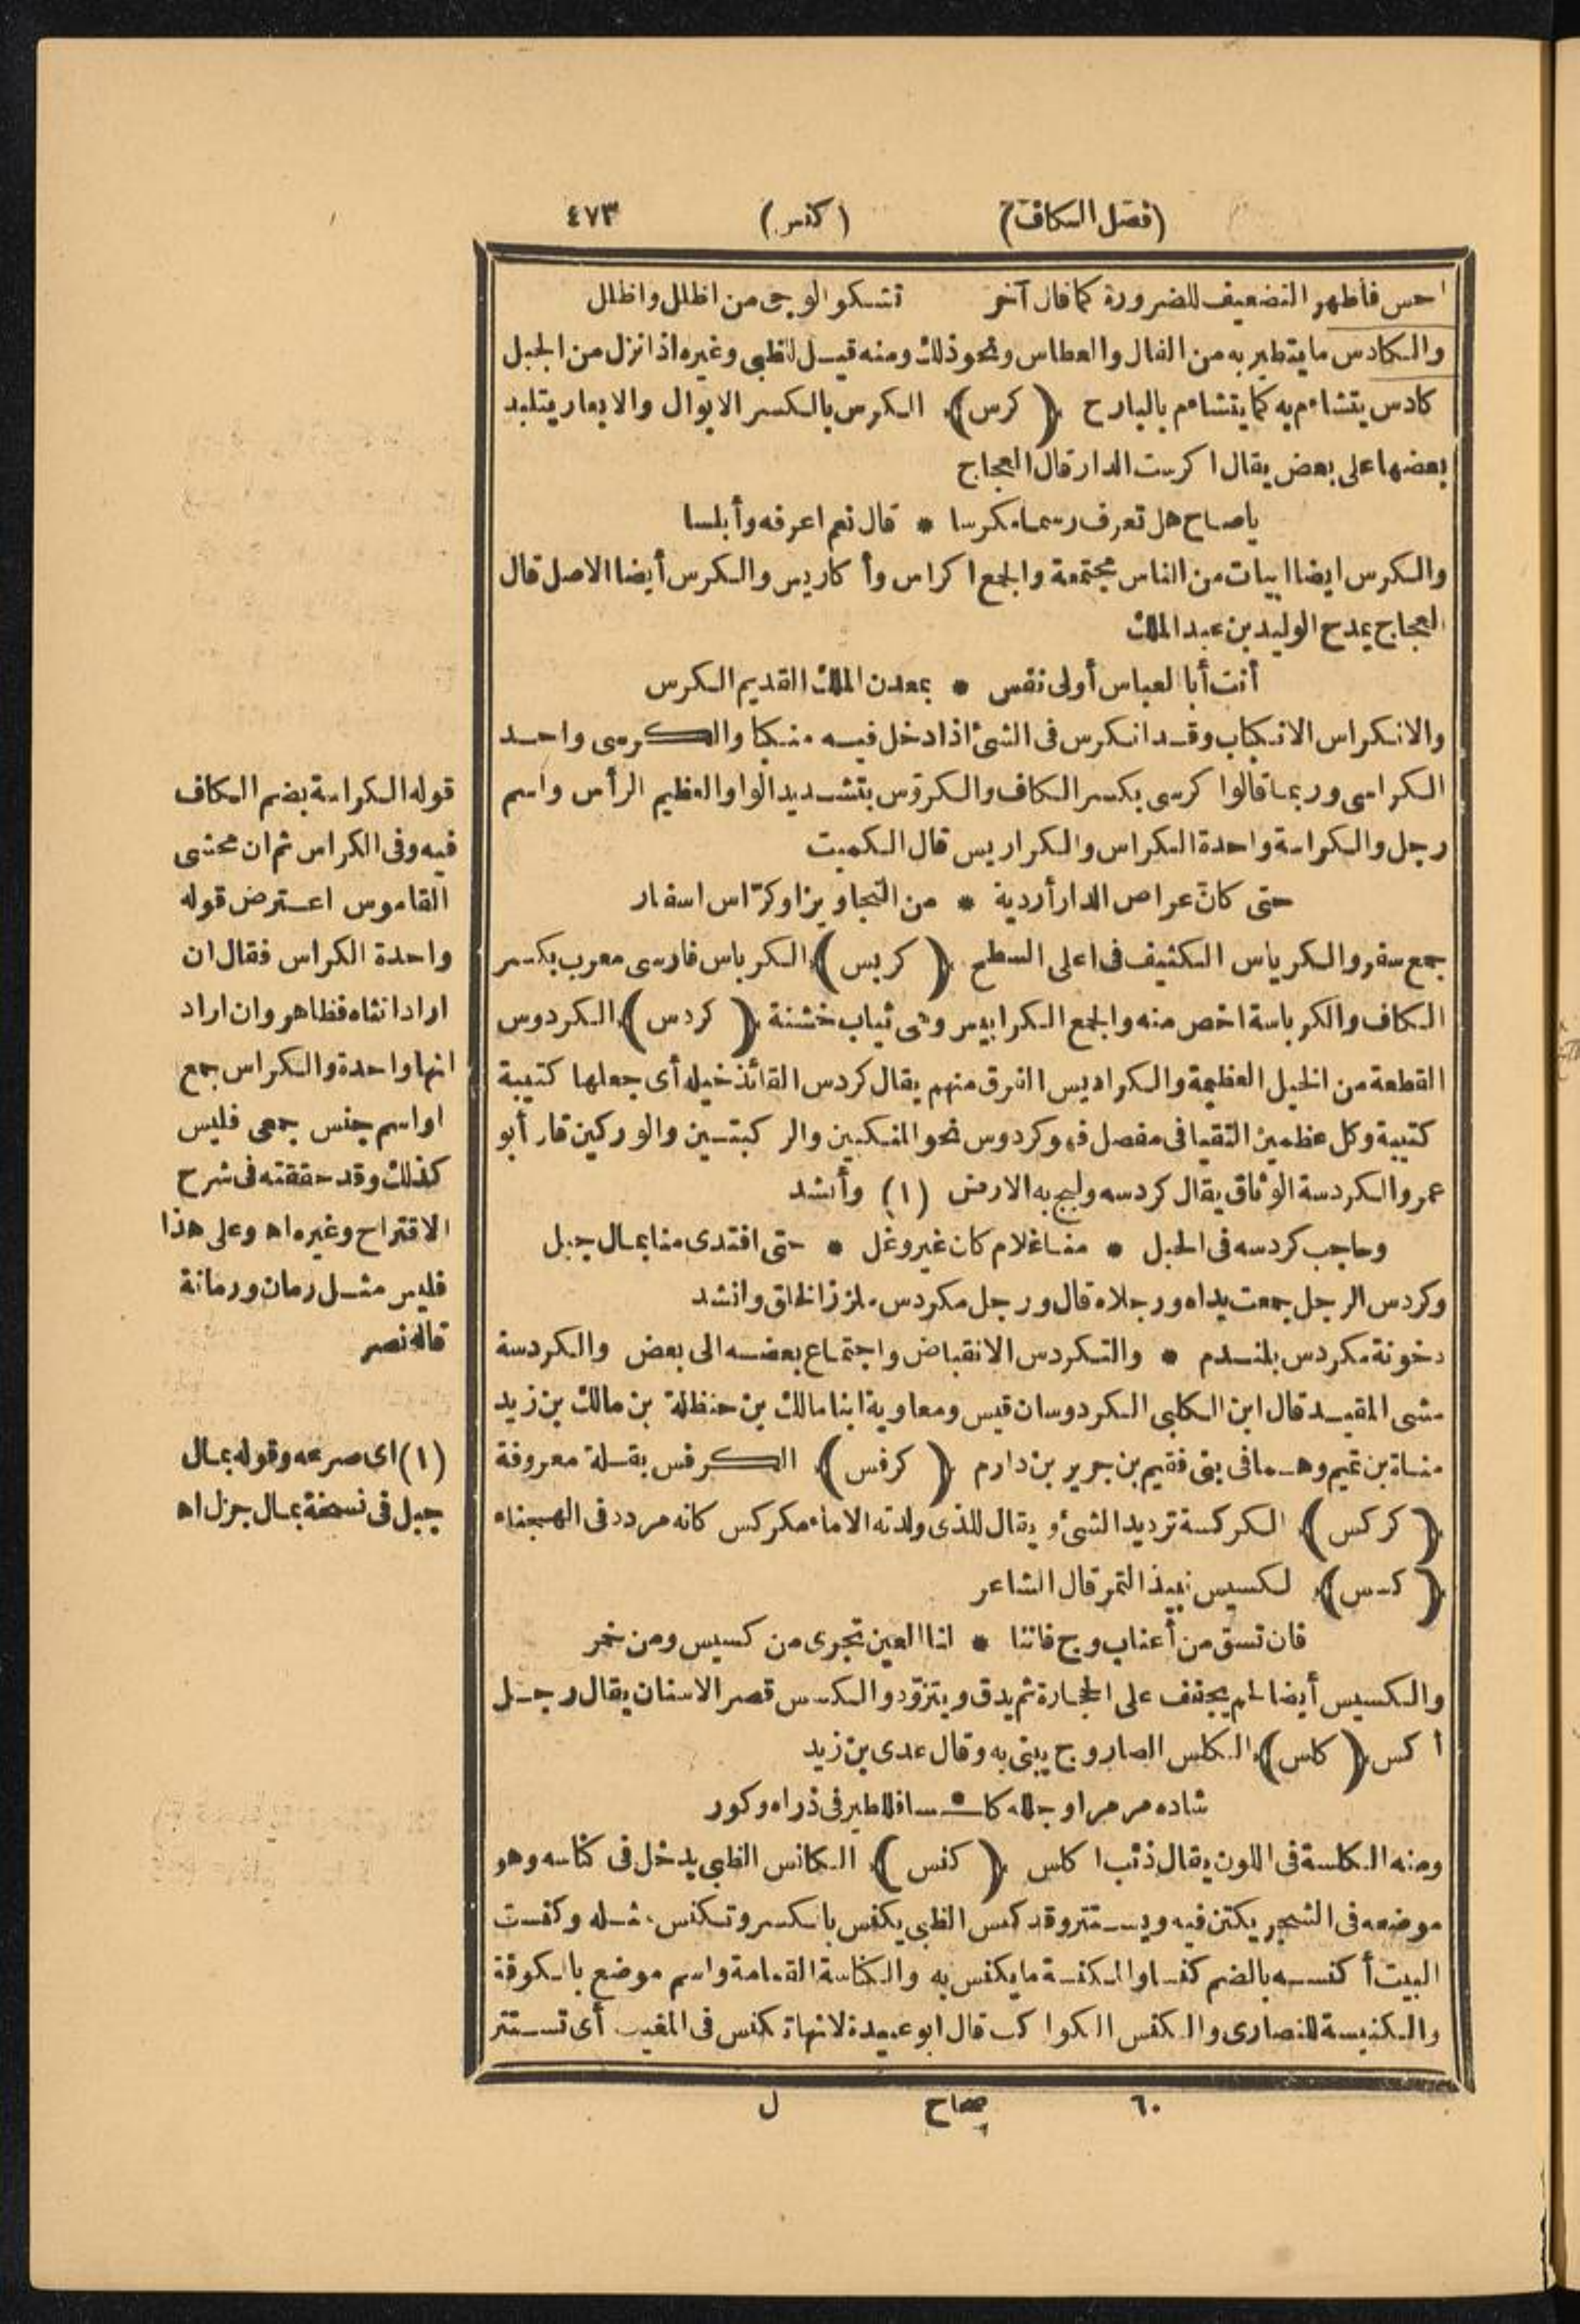 (فصل الكاف)
(كنس)
٤٧٣
احس فأظهر التضعيف للضرورة كما قال آخر تشكو الوجى من اظلل واظلل
والكادس ما يتطير به من الفال والعطاس ونحو ذلك ومنه قيل للظبى وغيره اذا نزل من الجبل
كادس يتشاءم به كما يتشاءم بالبارح (كرس) الكرس بالكسر الابوال والابعار يتلبد
بعضها على بعض يقال اكرست الدار قال العجاج
يا صاح هل تعرف رسما مكرسا * قال نعم اعرفه وأبلسا
والكرس ايضا ابيات من الناس مجتمعة والجمع اكراس وأكاريس والكرس أيضا الاصل قال
العجاج يمدح الوليد بن عبد الملك
أنت أبا العباس أولى نفس * بمعدن الملك القديم الكرس
والانكراس الانكباب وقد انكرس فى الشئ اذا دخل فيه منكبا والكرسى واحد
الكراسى وربما قالوا كرسى بكسر الكاف والكروّس بتشديد الواو العظيم الرأس واسم
رجل والكراسة واحدة الكراس والكراريس قال الكميت
حتى كانّ عراص الدار أردية * من التجاويز او كرّاس اسفار
جمع سفر والكرياس الكنيف فى اعلى السطح (كربس) الكرباس فارسى معرب بكسر
الكاف والكرباسة اخص منه والجمع الكرابيس وهى ثياب خشنة (كردس) الكردوس
القطعة من الخيل العظيمة والكراديس الفرق منهم يقال كردس القائد خيله أى جعلها كتيبة
كتيبة وكل عظمين التقيا فى مفصل فهو كردوس نحو المنكبين والركبتين والوركين قال أبو
عمرو الكردسة الوثاق يقال كردسه ولبج به الارض (١) وأنشد
وحاجب كردسه فى الحبل * منا غلام كان غير وغل * حتى افتدى منا بمال جبل
وكردس الرجل جمعت يداه ورجلاه قال ورجل مكردس ملزز الخلق وانشد
دخونة مكردس بلندم * والتكردس الانقباض واجتماع بعضه الى بعض والكردسة
مشى المقيد قال ابن الكلبى الكردوسان قيس ومعاوية ابنا مالك بن حنظلة بن مالك بن زيد
مناة بن تميم وهما فى بنى فقيم بن جرير بن دارم (كرفس) الكرفس بقلة معروفة
(كركس) الكركسة ترديد الشئ ويقال للذى ولدته الاماء مكركس كانه مردد فى الهجناء
(كسس) لكسيس نبيذ التمر قال الشاعر
فان تسق من أعناب وج فاننا * لنا العين تجرى من كسيس ومن خمر
والكسيس أيضا لحم يجفف على الحجارة ثم يدق ويتزوّد والكسس قصر الاسنان يقال رجل
أكس (كلس) الكلس الصاروج يبنى به وقال عدى بن زيد
شاده مرمرا وجلله كلـ * ـسا فللطير فى ذراه وكور
ومنه الكلسة فى اللون يقال ذئب اكلس (كنس) الكانس الظبى يدخل فى كناسه وهو
موضعه فى الشجر يكتن فيه ويستتر وقد كنس الظبى يكنس بالكسر وتكنس مثله وكنست
البيت أكنسه بالضم كنسا والمكنسة ما يكنس به والكناسة القمامة واسم موضع بالكوفة
والكنيسة للنصارى والكنس الكواكب قال ابو عبيدة لانها تكنس فى المغيب أى تستتر
قوله الكراسة بضم الكاف
فيه وفى الكراس ثم ان محشى
القاموس اعترض قوله
واحدة الكراس فقال ان
اراد انثاه فظاهر وان اراد
انها واحدة والكراس جمع
او اسم جنس جمعى فليس
كذلك وقد حققته فى شرح
الاقتراح وغيره اه وعلى هذا
فليس مثل رمان ورمانة
قاله نصر
(١) اى صرعه وقوله بمال
جبل فى نسخة بمال جزل اه
٦٠
صحاح
ل